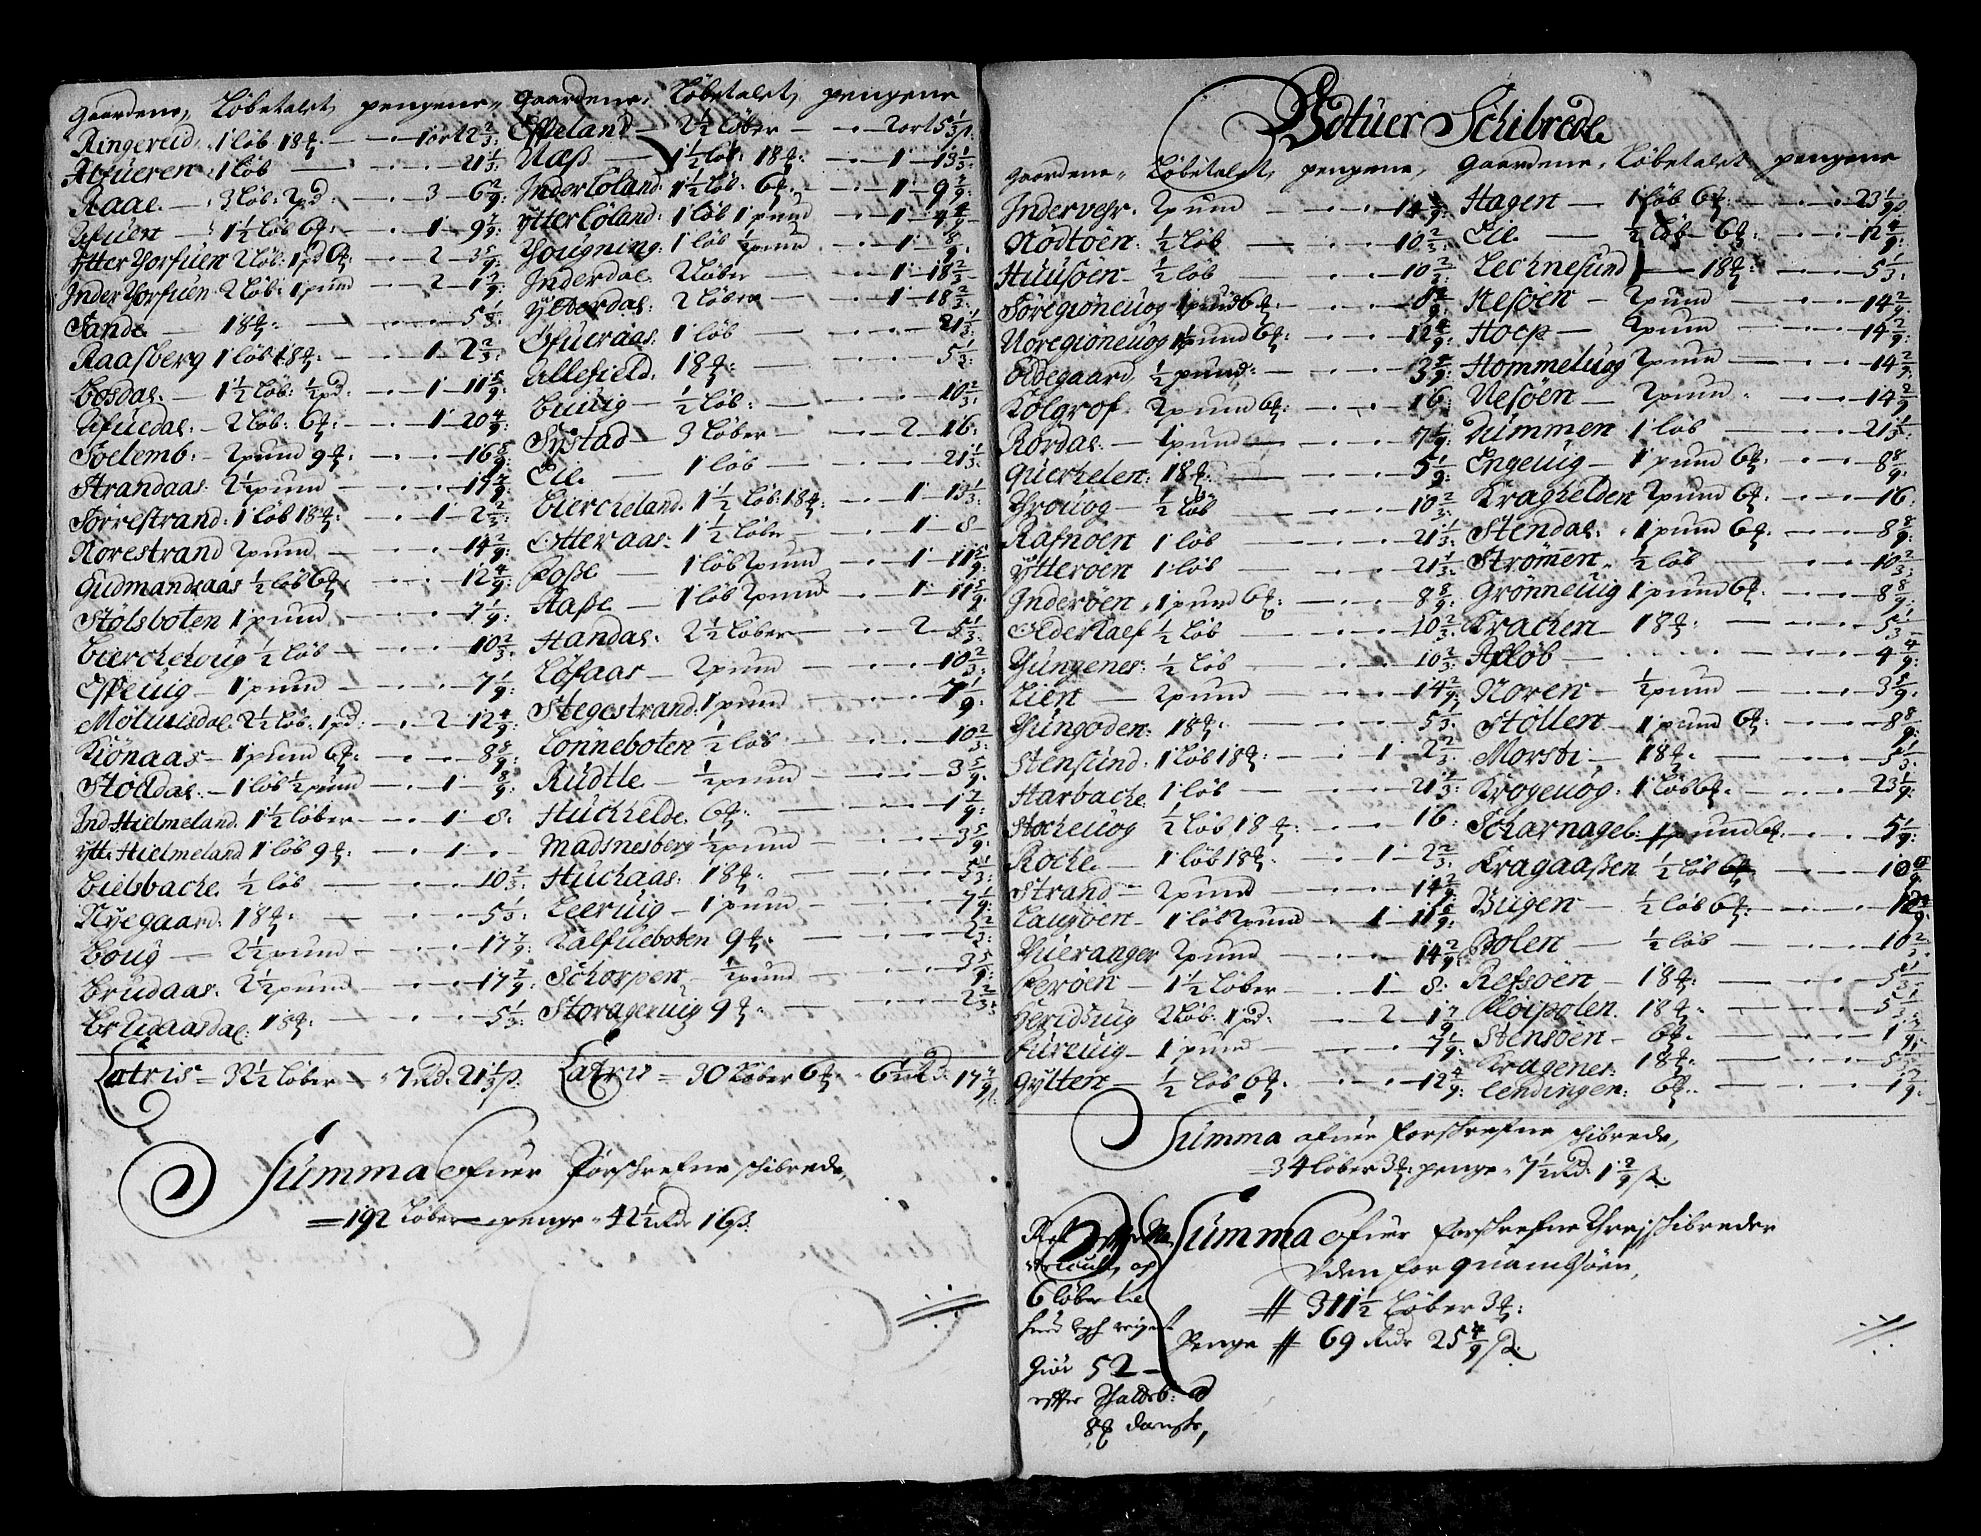 Gaardene, Løbetalet, pengene,
Ringereid, 1 løb 18 ℔: — 1 ort 2 2/3:
1 løb — 21 1/3:
Raae — 3 løb: 2 pd — 3 — 6 2/9:
1 1/2 løb 6 ℔: — 1 — 9 7/9:
Ytter 2 løb: 1 pd 6 ℔: — 2 — 3 5/9:
Inder 2 løb: 1 pund — 2 — 1 7/9:
Sande — 18 ℔: — 5 1/3:
Raasberg 1 løb 18 ℔: — 1 — 2 2/3:
Bosdal — 1 1/2 løb: 1/2 pd: — 1 — 11 5/9:
Afuedal — 2 løb: 6 ℔: — 1 — 20 4/9:
Soelemb: — 2 pund 9 ℔: — 16 8/9:
Strandaas: 2 1/2 pund — 17 7/9:
Sørrestrand: 1 løb 18 ℔: — 1 — 2 2/3:
Norestrand 2 pund — 14 2/9:
Gudmandsaas 1/2 løb 6 ℔: — 12 4/9:
Stølsboten 1 pund — 7 1/9:
Bierchewig 1/2 løb — 10 2/3:
Effeuig — 1 pund — 7 1/9:
Møluisdal 2 1/2 løb: 1 pd: — 2 — 12 4/9:
Kionaas — 1 pund 6 ℔: — 8 8/9:
Stølldal — 1 løb 1/2 pund — 1 — 8/9:
Ind Hielmeland: 1 1/2 løber — 1 — 8:
ytt: Hielmeland 1 løb 9 ℔: — 1 —
Bielsbache 1/2 løb — 10 2/3:
Nyegaard: 18 ℔: — 5 1/3:
Boug — 2 1/2 pund — 17 7/9:
Brudaas: 2 1/2 pund — 17 7/9:
Brudaasdal: 18 ℔: — 5 1/3:
Latris = 32 1/2 løber — 7 rd: 21 1/3 ß:
Gaardene, Løbetalet, pengene
Espeland — 2 1/2 løber — 2 ort 5 1/3 ß
Næß — 1 1/2 løb: 18 ℔: — 1 — 13 1/3:
Inder Loland: 1 1/2 løb: 6 ℔: — 1 — 9 7/9:
Ytter Loland: 1 løb 1 pund — 1 — 4 4/9:
Yougning: 1 løb 1/2 pund — 1 — 8/9:
Inderdal 2 løber — 1 — 18 2/3:
Ytterdal: 2 løber — 1 — 18 2/3:
Ofueraas: 1 løb — 21 1/3:
Ullefield: 18 ℔: — 5 1/3:
Buuig — 1/2 løb: — 10 2/3:
Systad — 3 løber — 2 — 16:
Eie — 1 løb — 21 1/3:
Biercheland: 1 1/2 løb: 18 ℔: — 1 — 13 1/3:
Otteraas: 1 1/2 løber — 1 — 8 —
Løße — 1 løb 2 pund — 1 — 11 5/9:
Haße — 1 løb 2 pund — 1 — 11 5/9:
Handal: 2 1/2 løber — 2 — 5 1/3:
Løfaas — 2 pund — 10 2/3:
Stegestrand: 1 pund — 7 1/9:
Lønneboten 1/2 løb — 10 2/3:
Rudtle — 1/2 pund — 3 5/9:
Huchelde 6 ℔: — 1 7/9:
Madsnesberg 1/2 pund — 3 5/9:
Huchaas: 18 ℔: — 5 1/3:
Leeruig — 1 pund — 7 1/9:
Kalfueboten 9 ℔: — 2 2/3:
Schorpen 1/2 pund — 3 5/9:
Storageruig 9 ℔: — 2 2/3:
Latris = 30 løber 6 ℔: — 6 1/2 rd: 17 7/9 ß:
Summa ofuer Forschrefne schibrede,
= 192 løber — penge — 42 1/2 rdr 16 ß:
Botuer Schibrede
Gaardene, Løbetalet, pengene,
Indervehr: 2 pund — 14 2/9:
Nødtøen: 1/2 løb — 10 2/3:
Huusøen — 1/2 løb — 10 2/3:
Søregiøneuog 1 pund 6 ℔: — 8 8/9:
Noregiøneuog 1 pund 6 ℔: — 12 4/9:
Ødegaard 1/2 pund: — 3 5/9:
Kolgrof: 2 pund 6 ℔: — 16:
Rørdal — 1 pund — 7 1/9:
Guerchelen: 18 ℔: — 5 1/3:
1/2 løb — 10 2/3:
Rafnøen 1 løb — 21 1/3:
Ytterøen 1 løb — 21 1/3:
Inderøen 1 pund 6 ℔: — 8 8/9:
1/2 løb — 10 2/3:
Yungenes: 1/2 løb — 10 2/3:
Lien — 2 pund — 14 2/9:
Yungoden: 18 ℔: — 5 1/3:
Stensund: 1 løb 18 ℔: — 1 — 2 2/3:
Harbache 1 løb — 21 1/3:
Stocheuog 1/2 løb 18 ℔: — 16:
Roche — 1 løb 18 ℔: — 1 — 2 2/3:
Strand — 2 pund — 14 2/9:
Laugøen — 1 løb 2 pund — 1 — 11 5/9:
2 pund — 14 2/9:
Perøen — 1 1/2 løber — 1 — 8:
2 løb: 1 pd: — 2 — 1 7/9
Fureuig — 1 pund — 7 1/9:
Gylten — 1/2 løb 6 ℔: — 12 4/9:
Gaardene, Løbetalet pengene
Hagen — 1 løb 6 ℔: — 23 1/9:
Eie — 1/2 løb 6 ℔: — 12 4/9:
Lechnesund — 18 ℔: — 5 1/3:
Nesøen — 2 pund — 14 2/9:
Hoep — 2 pund — 14 2/9:
Hommeluog 2 pund — 14 2/9:
Nesøen — 2 pund — 14 2/9
Nimmen 1 løb — 21 1/3:
Engeuig — 1 pund 6 ℔: — 8 8/9:
Kraghelden 2 pund 6 ℔: — 16:
Stendal: 1 pund 6 ℔: — 8 8/9:
Strømen, 1/2 løb — 10 2/3:
Grønneuig 1 pund 6 ℔: — 8 8/9:
Krachen — 18 ℔: — 5 1/3:
Afløb — 4 4/9:
Noren — 1/2 pund — 3 5/9:
Støllen — 1 pund 6 ℔: — 8 8/9:
Morsti — 18 ℔: — 5 1/3:
Krogeuog: 1 løb 6 ℔: — 23 1/9:
Scharnagel: — 5 1/9:
Kragaaßen 1/2 løb
Bugen — 1/2 løb 6 ℔:
Polen — 1/2 løb — 10 2/3:
Refsøen — 18 ℔: — 5 1/3:
Kloipolen 18 ℔: — 5 1/3:
Stensøen — 6 ℔: — 1 7/9:
Kragenes 18 ℔: — 5 1/3:
Lendingen: 6 ℔: — 1 7/9:
Summa ofuer Forschrefne schibrede,
= 34 løber 3 ℔: penge = 7 1/2 rd: 1 7/9 ß:
Summa ofuer forschrefne Threj schibreder
Uden for Quamsøen,
# 311 1/2 løber 3 ℔:
Penge # 69 Rdr 25 4/9 ß:
6 løber
Giør 52 —
efter
8 ß danske,